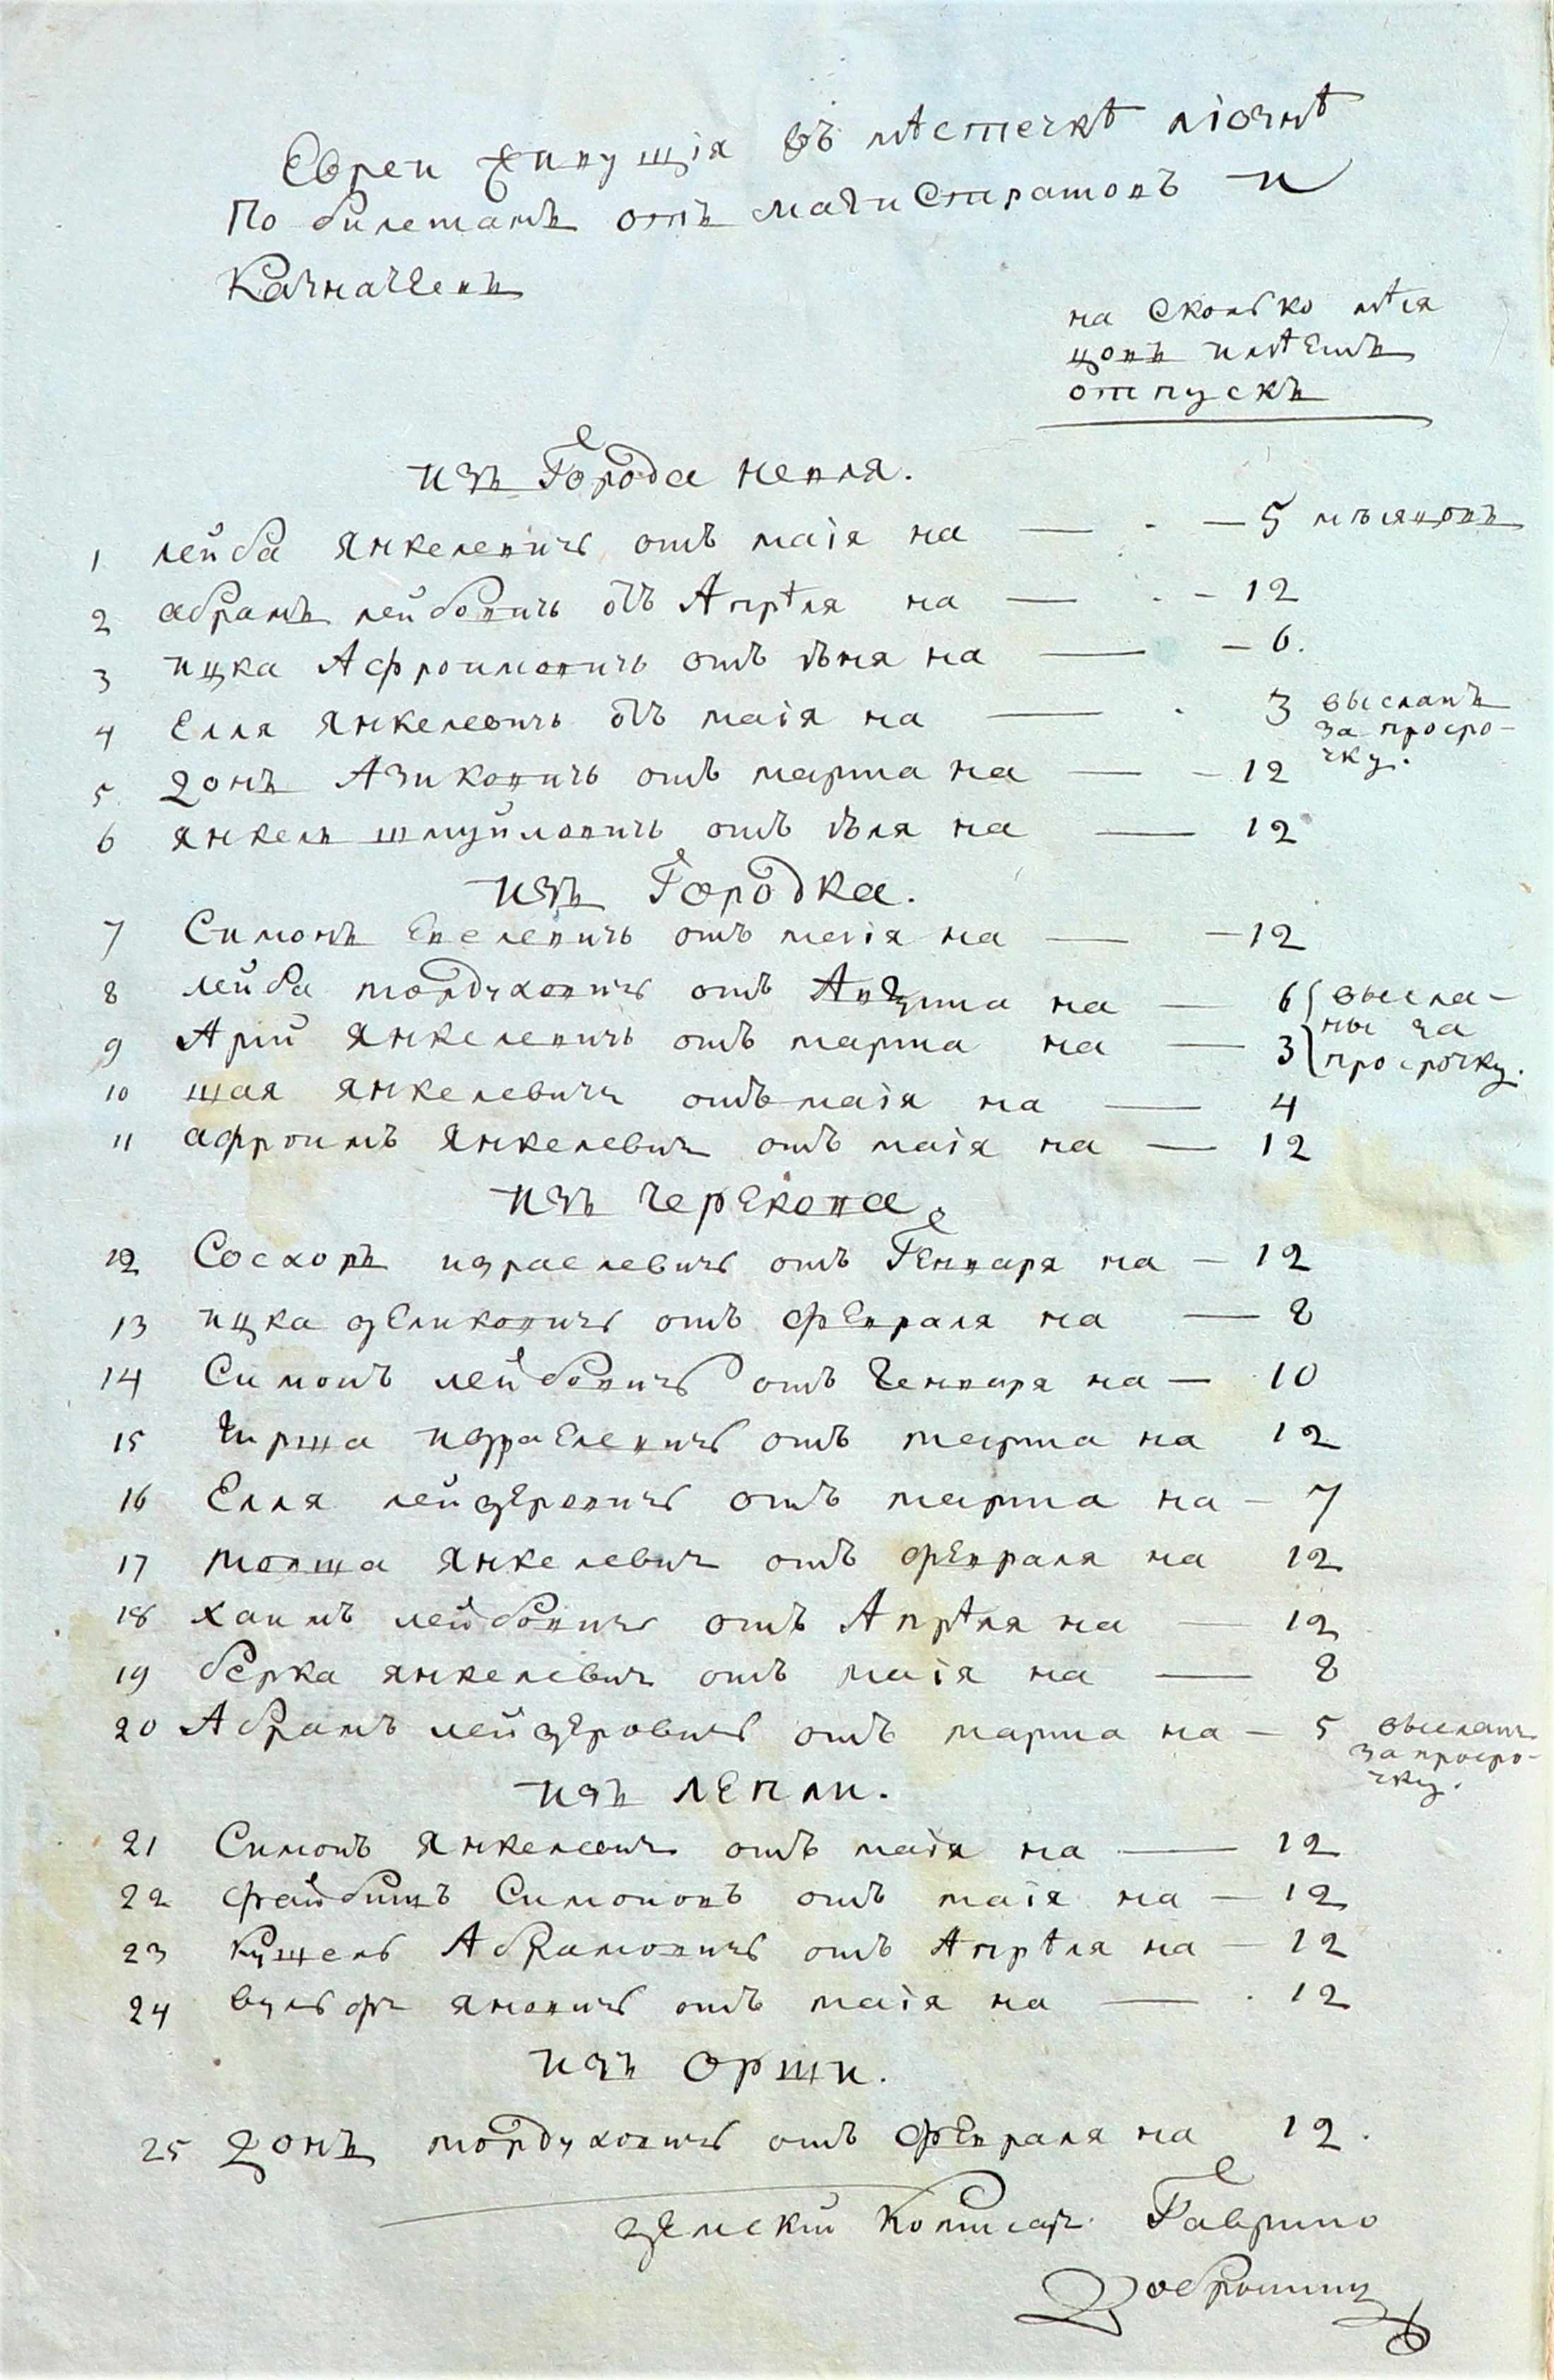 Евреи живущія въ мѣстечкѣ ліознѣ
По билетамъ отъ магистратовъ и
Казначеевъ
на сколько мѣся
цовъ имѣетъ
отпускъ
изъ Города невля.
1 лейба янкелевичь отъ маія на — 5 мѣсяцовъ
2 абрамъ лейбовичь отъ Апрѣля на — 12
3 ицка Афроимовичь отъ на — 6.
4 Еля янкелевичь отъ маія на — 3 высланъ
за просро-
чку.
5 Азиковичь отъ марта на — 12
6 янкель шмуйловичь отъ на — 12
изъ Городка.
7 Симонъ отъ маія на — 12
8 лейба мордуховичь отъ Августа на — 6 высла-
ны за
просрочку.
9 Арій янкелевичь отъ марта на — 3
10 шая янкелевичь отъ маія на — 4
11 афроимъ янкелевич отъ маія на — 12
изъ черекова.
12 израелевичь отъ Генваря на — 12
13 ицка зеликовичь отъ февраля на — 8
14 Симонъ лейбовичь отъ Генваря на — 10
15 Гирша израелевичь отъ марта на 12
16 Еля лейзеровичь отъ марта на — 7
17 мовша янкелевич отъ февраля на 12
18 хаимъ лейбовичь отъ Апрѣля на — 12
19 берка янкелевич отъ маія на — 8
20 Абрамъ лейзеровичь отъ марта на — 5 высланъ
за просро-
чку.
изъ лепли.
21 Симонъ янкелевич отъ маія на — 12
22 файбишъ Симоновъ отъ маія на — 12
23 кушель Абрамовичь отъ Апрѣля на — 12
24 вульфъ яновичь отъ маія на — 12
изъ орши.
25 мордуховичь отъ февраля на 12.
земскій Комисаръ Гаврило